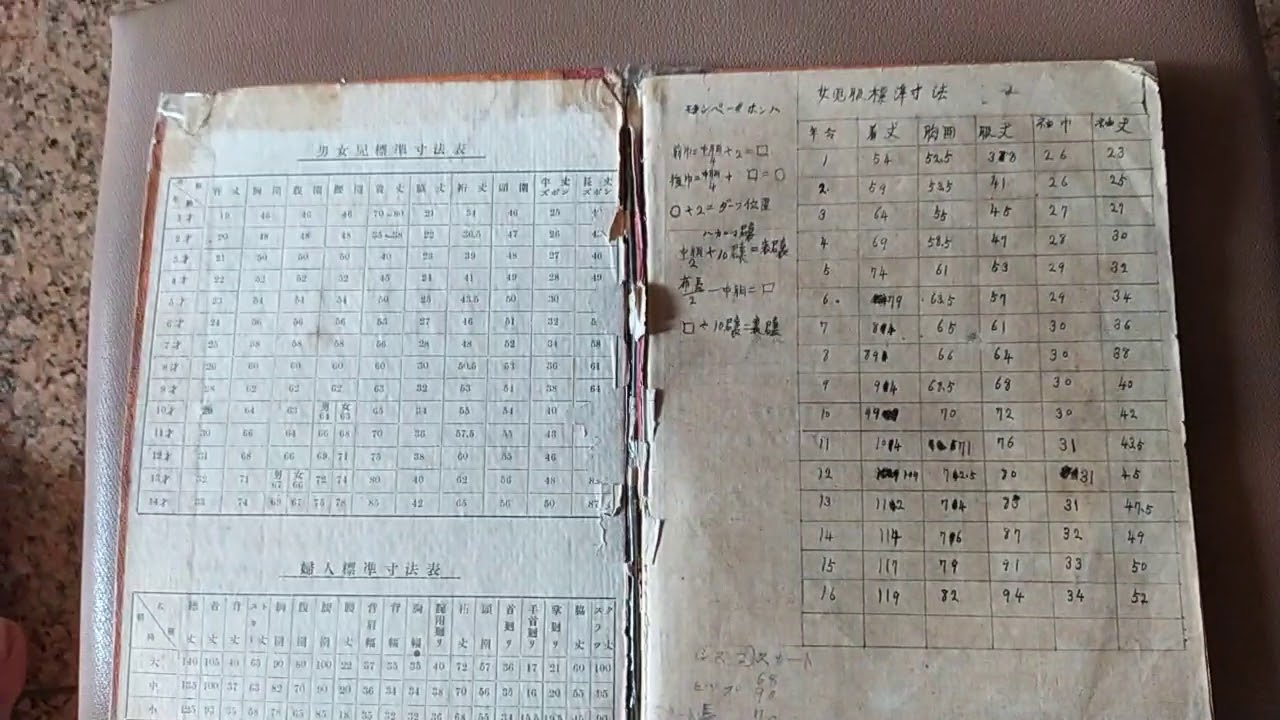 男女児標準寸法表
背丈 胸囲 腹囲 腰囲 着丈 脇丈 裄丈 頭囲 半丈ズボン 長丈ズボン
1才 19 46 46 46 21 46 25
2才 20 48 48 48 22 30.5 47 26
3才 21 50 50 50 40 23 39 48 27 46
4才 22 52 52 52 45 24 41 49 28 49
5才 23 54 54 54 50 25 43.5 50 30
6才 24 56 56 56 53 27 46 51 32
7才 25 58 58 58 56 28 48 52 34 58
8才 26 60 60 60 60 30 50.5 53 36 61
9才 28 62 62 62 63 32 53 54 38 64
10才 64 63 男64 女63 65 34 55 54 40
11才 30 66 64 66 68 70 36 57.5 55 43
12才 31 68 66 69 71 75 38 60 55 46
13才 32 71 男67 女66 72 74 80 40 62 56 48
14才 33 74 69 67 75 78 85 42 65 56 50 87
婦人標準寸法表
総丈 着丈 背丈 スカート丈 胸囲 腹囲 腰囲 腰丈 背肩幅 背幅 胸幅 腕附廻り 裄丈 頭囲 首廻り 手首廻り 掌廻り 脇丈 スラックス丈
大 140 105 40 65 90 80 100 22 37 35 35 40 72 57 36 17 21 60 100
中 135 100 37 63 82 70 90 20 36 34 34 38 70 56 35 16 20 55 95
小 125 95 35 58 78 65 85 18 32 36 68 55 34
前巾=中胴/4+2=□
後巾=中胴/4+□=○
○÷2=ダーツ位置
中胴/2+10=
布巾/2-中胴=□
□÷10=
女児服標準寸法
年令 着丈 胸囲 服丈 袖巾 袖丈
1 54 52.5 38 26 23
2 59 53.5 41 26 25
3 64 55 45 27 27
4 69 58.5 47 28 30
5 74 61 53 29 32
6 79 63.5 57 29 34
7 84 65 61 30 36
8 89 66 64 30 38
9 94 68.5 68 30 40
10 99 70 72 30 42
11 104 71 76 31 43.5
12 109 72.5 80 31 45
13 112 74 83 31 47.5
14 114 76 87 32 49
15 117 79 91 33 50
16 119 82 94 34 52
スカート
68
90